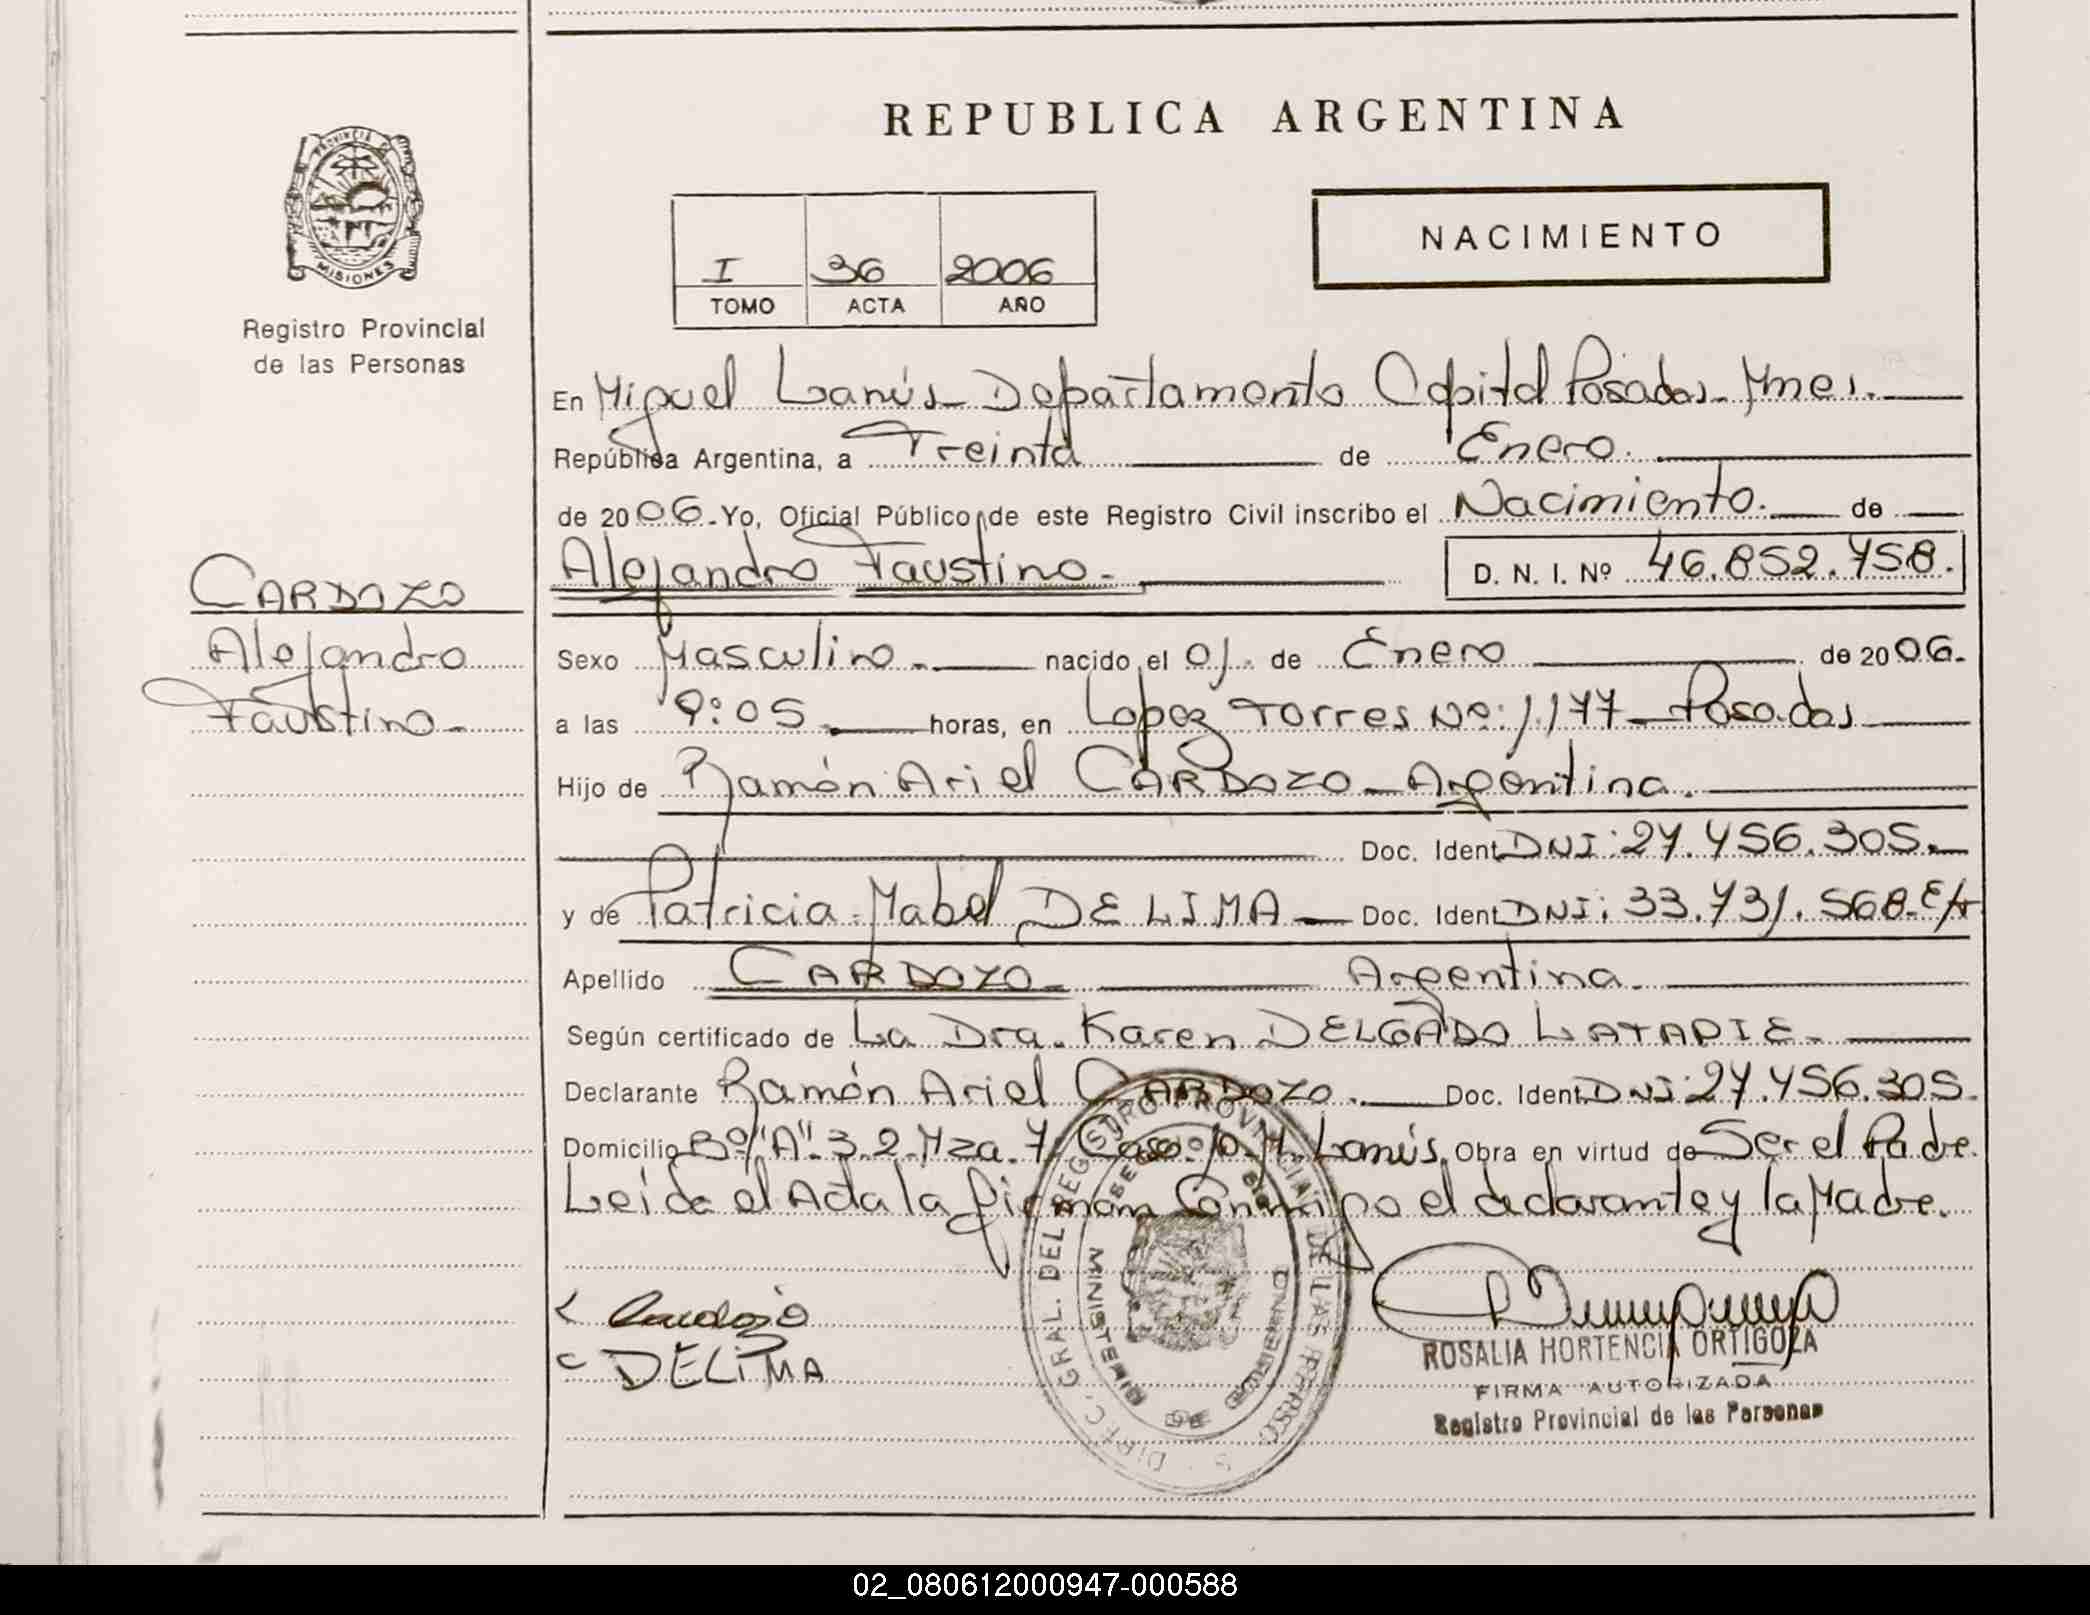 REPUBLICA ARGENTINA
PROVINCIA DE MISIONES
Registro Provincial
de las Personas
I 36 2006
TOMO ACTA AÑO
NACIMIENTO
En Miguel Lanús - Departamento Capital Posadas - Mnes.
República Argentina, a Treinta de Enero.
de 2006.- Yo, Oficial Público de este Registro Civil inscribo el Nacimiento. de
Alejandro Faustino.- D. N. I. Nº 46.852.758.
CARDOZO
Alejandro
Faustino.-
Sexo Masculino.- nacido el 01. de Enero de 2006.
a las 9:05 horas, en Lopez Torres Nº: 1177 - Posadas
Hijo de Ramón Ariel CARDOZO - Argentina.
Doc. Ident. DNI: 27.456.305.-
y de Patricia Mabel DE LIMA - Doc. Ident. DNI: 33.731.568.- E/t
Apellido CARDOZO.- Argentina.
Según certificado de La Dra. Karen DELGADO LATAPIE.-
Declarante Ramón Ariel CARDOZO. Doc. Ident. DNI: 27.456.305.
Domicilio Bº "A". 3.2. Mza. 7. Casa. 10. M. Lanús. Obra en virtud de Ser el Padre.
Leida el Acta la firman Conmigo el declarante y la Madre.
Cardozo
DELIMA
DIREC. GRAL. DEL REGISTRO PROVINCIAL DE LAS PERSONAS
MINISTERIO DE GOBIERNO
ROSALIA HORTENCIA ORTIGOZA
FIRMA AUTORIZADA
Registro Provincial de las Personas
02_080612000947-000588